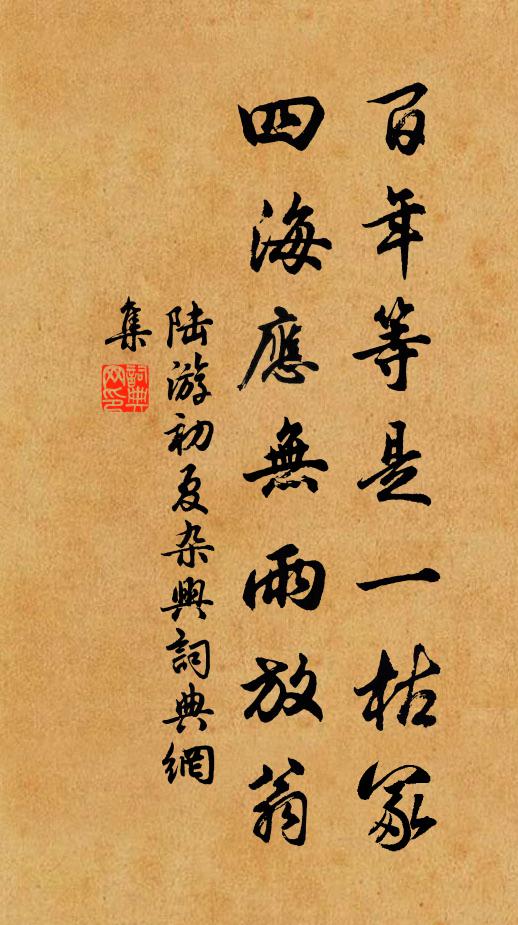 百年等是一枯冢
四海應無兩放翁
陸游初夏杂興詞典網
集
詞典
网印